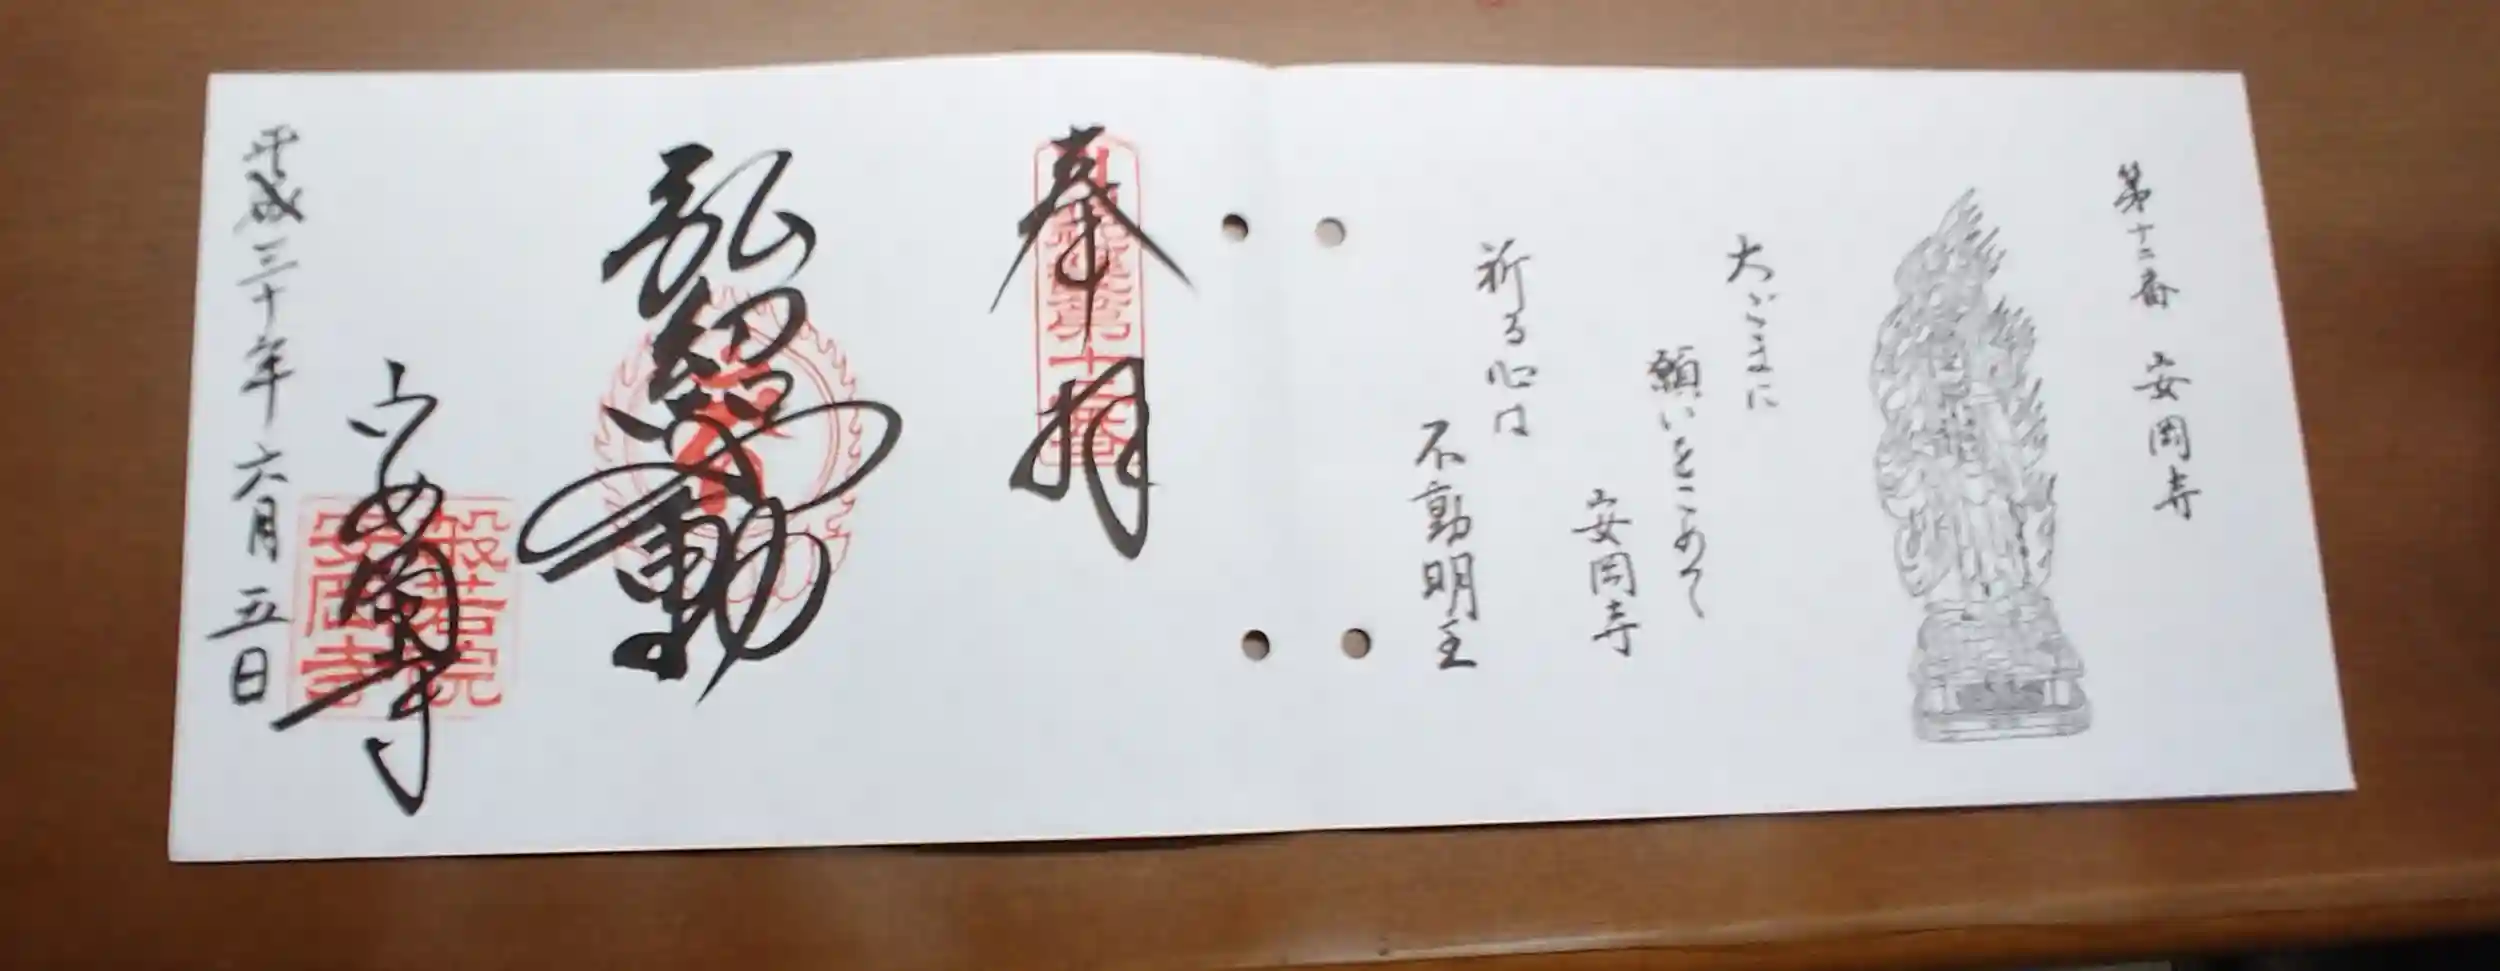 第十二番 安岡寺
大ごまに
願いをこめて
安岡寺
祈る心は
不動明王
奉拝
弘紹不動
安岡寺
般若院
安岡寺
平成三十年六月五日